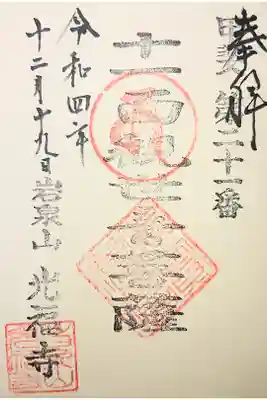 奉拝
甲斐第二十一番
十一面観世音菩薩
令和四年
十二月十九日
岩泉山
光福寺